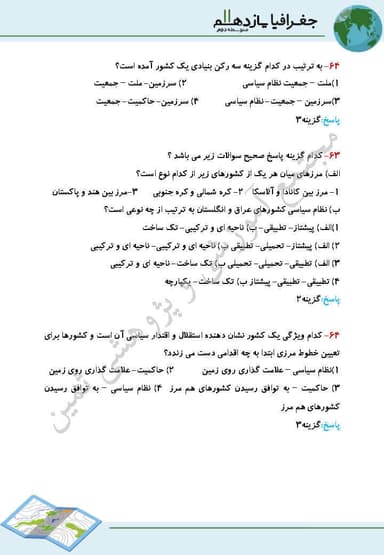 جغرافیا یازدهم
متوسطه دوم
۶۴- به ترتیب در کدام گزینه سه رکن بنیادی یک کشور آمده است؟
۱)ملت – جمعیت نظام سیاسی ۲) سرزمین- ملت – جمعیت
۳)سرزمین – جمعیت- نظام سیاسی ۴) سرزمین- حاکمیت- جمعیت
پاسخ:گزینه۳
۶۳- کدام گزینه پاسخ صحیح سوالات زیر می باشد ؟
الف) مرزهای میان هر یک از کشورهای زیر از کدام نوع است؟
۱- مرز بین کانادا و آلاسکا ۲- کره شمالی و کره جنوبی ۳-مرز بین هند و پاکستان
ب) نظام سیاسی کشورهای عراق و انگلستان به ترتیب از چه نوعی است؟
۱)الف) پیشتاز- تطبیقی- ب) ناحیه ای و ترکیبی- تک ساخت
۲) الف) پیشتاز- تحمیلی- تطبیقی ب) ناحیه ای و ترکیبی- ناحیه ای و ترکیبی
۳) الف) تطبیقی- تطبیقی- تحمیلی ب) تک ساخت- ناحیه ای و ترکیبی
۴) تطبیقی- تطبیقی- پیشتاز ب) تک ساخت- یکپارچه
پاسخ:گزینه۲
۶۴- کدام ویژگی یک کشور نشان دهنده استقلال و اقتدار سیاسی آن است و کشورها برای
تعیین خطوط مرزی ابتدا به چه اقدامی دست می زندد؟
۱)نظام سیاسی – علامت گذاری روی زمین ۲) حاکمیت- علامت گذاری روی زمین
۳) حاکمیت – به توافق رسیدن کشورهای هم مرز ۴) نظام سیاسی – به توافق رسیدن
کشورهای هم مرز
پاسخ:گزینه۳
مجتمع آموزشی و پژوهشی